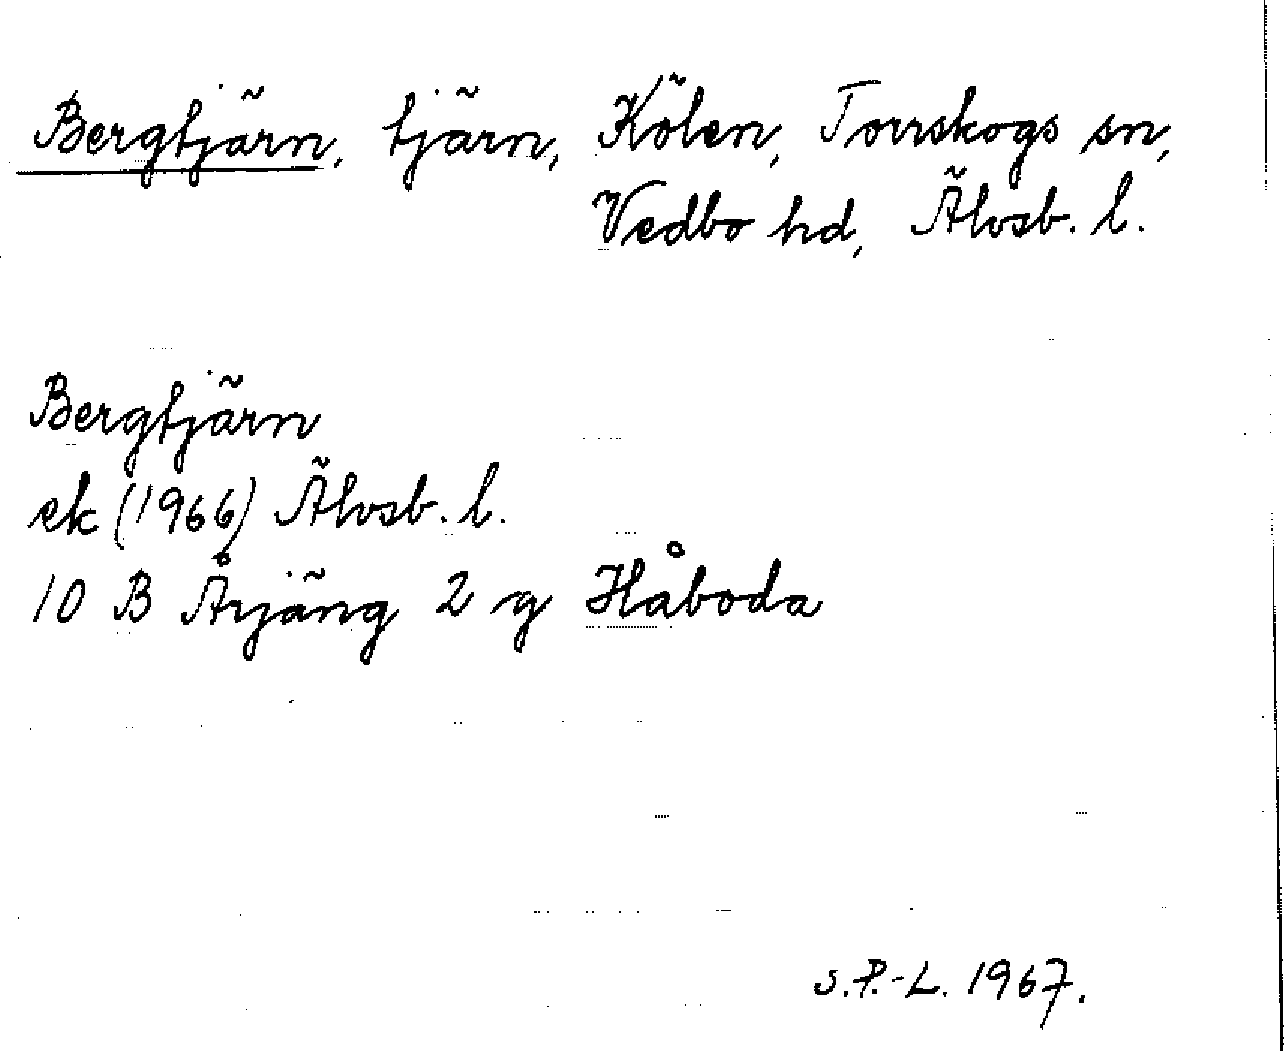 Bergtjärn, tjärn, Kölen, Torrskogs sn,
Vedbo hd, Älvsb. l.
Bergtjärn
ek (1966) Älvsb. l.
10 B Årjäng 2 g Håboda
S.P.-L. 1967.